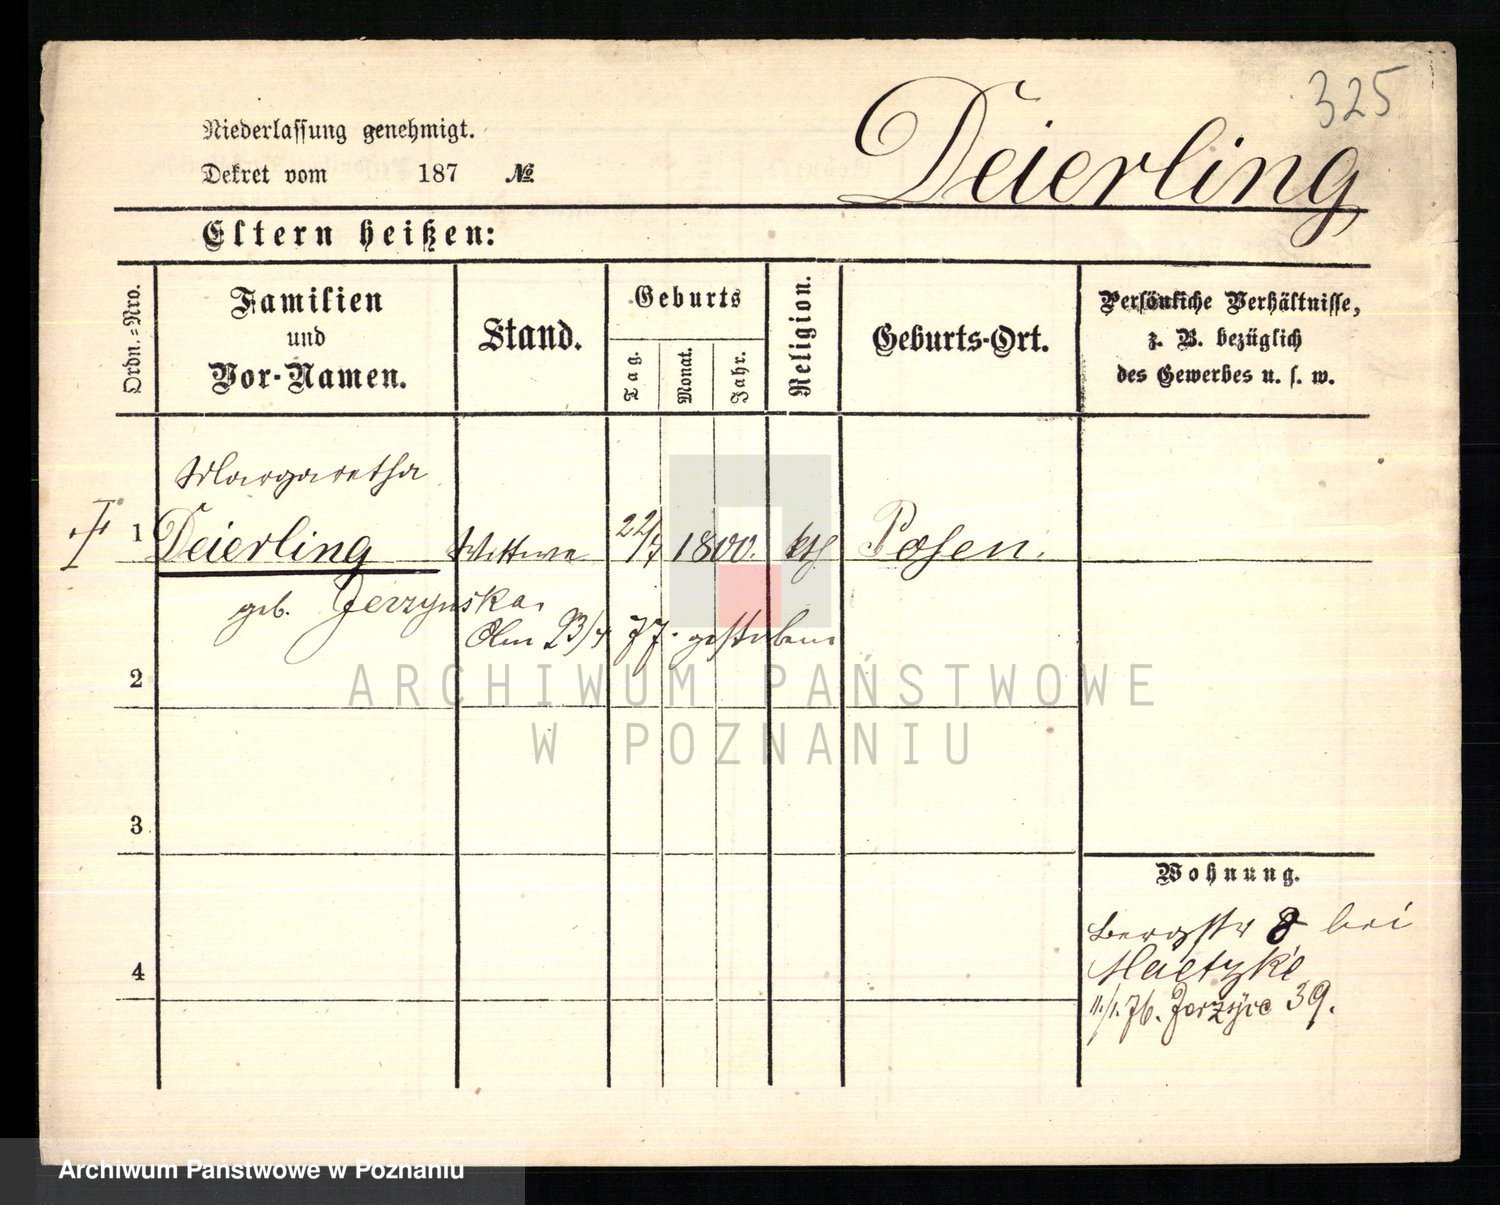 325
Deierling
Niederlassung genehmigt.
Dekret vom 187 №
Eltern heißen:
Ordn.-Nro.
Familien
und
Vor-Namen.
Stand.
Geburts
Tag.
Monat.
Jahr.
Religion.
Geburts-Ort.
Persönliche Verhältnisse,
z. B. bezüglich
des Gewerbes u. s. w.
Margaretha
1 Deierling Wittwe 22/7 1800. kth Posen.
geb. Jerzynska.
Am 23/7 77. gestorben
2
3
4
Wohnung.
Bergstr 8 bei
11./1. 76. Jerzyce 39.
ARCHIWUM PAŃSTWOWE
W POZNANIU
Archiwum Państwowe w Poznaniu